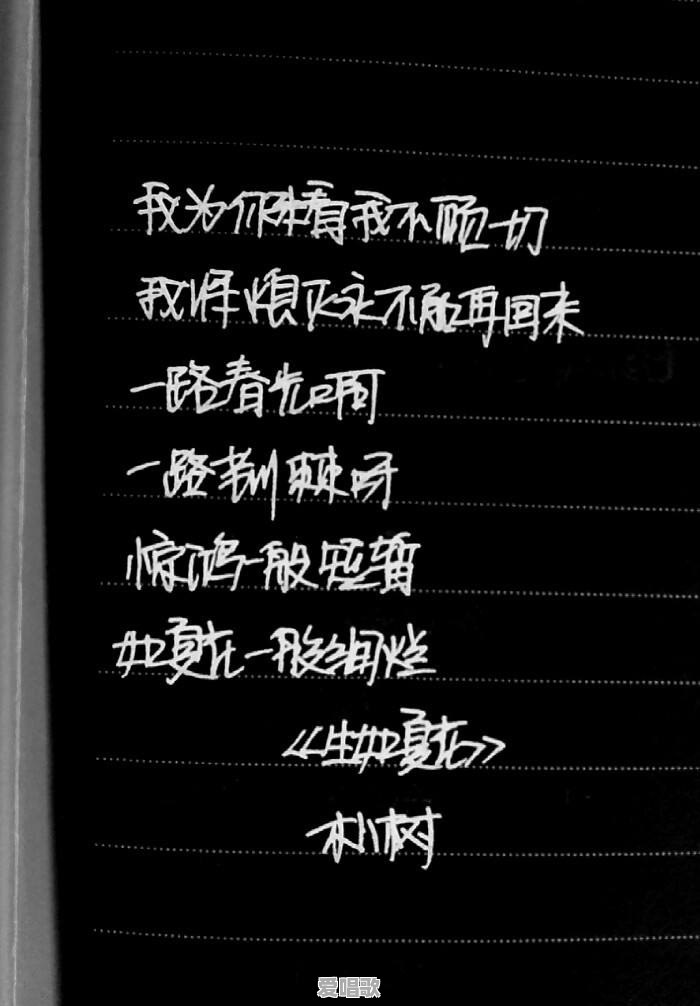 我为你来看我不顾一切
我将熄灭永不能再回来
一路春光啊
一路荆棘呀
惊鸿一般短暂
如夏花一般绚烂
《生如夏花》
朴树
爱唱歌